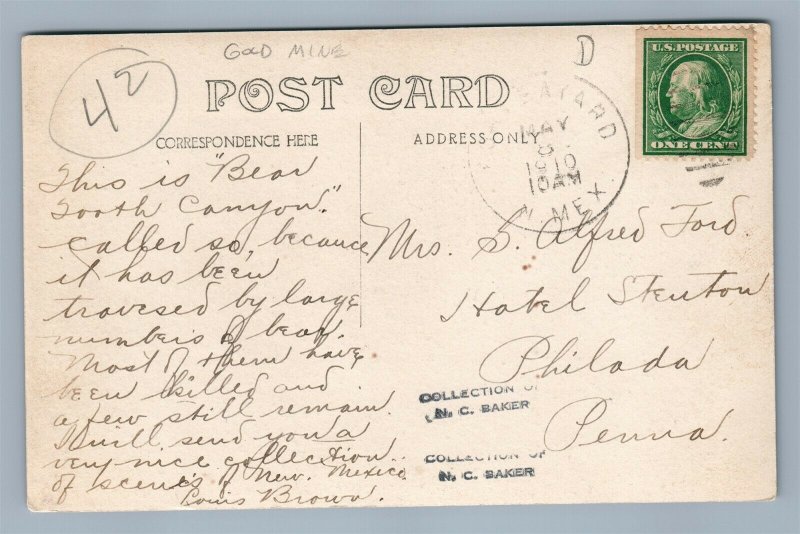 GOLD MINE
42
POST CARD
CORRESPONDENCE HERE
ADDRESS ONLY
D
BAYARD
MAY
10AM
N. MEX
U.S. POSTAGE
ONE CENT
This is "Bear
Tooth Canyon."
called so, because
it has been
travesed by large
numbers of bear.
Most of them have
been killed and
a few still remain.
I will send you a
very nice collection
of scenes of New. Mexico
Louis Brown.
Mrs. S. Alfred Ford.
Hotel Stenton
Philada
Penna.
COLLECTION OF
N. C. BAKER
COLLECTION OF
N. C. BAKER